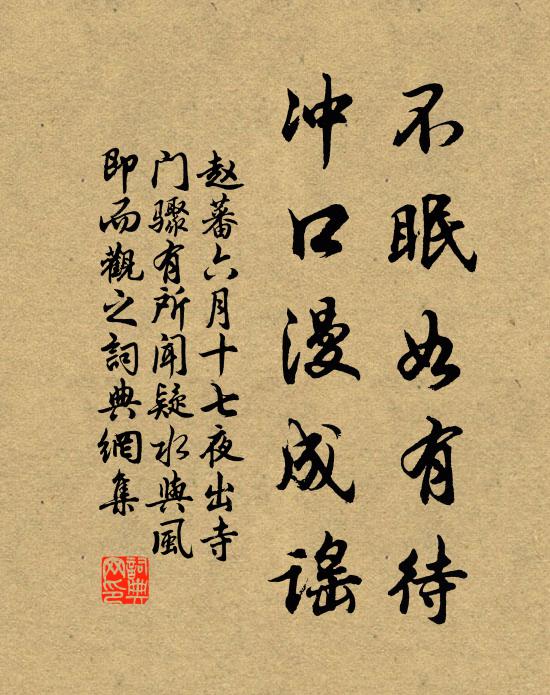 不眠如有待
冲口漫成谣
赵蕃六月十七夜出寺
门骤有所闻疑水与風
即而觀之詞典網集
詞典网印